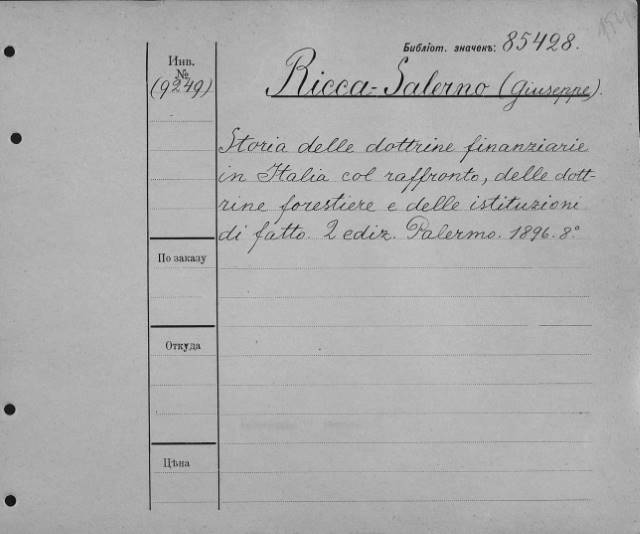 Библіот. значекъ: 85428.
Инв.
№
(9249)
Ricca-Salerno (Giuseppe).
Storia delle dottrine finanziarie
in Italia col raffronto, delle dott-
rine forestiere e delle istituzioni
di fatto. 2 ediz. Palermo. 1896. 8°
По заказу
Откуда
Цѣна